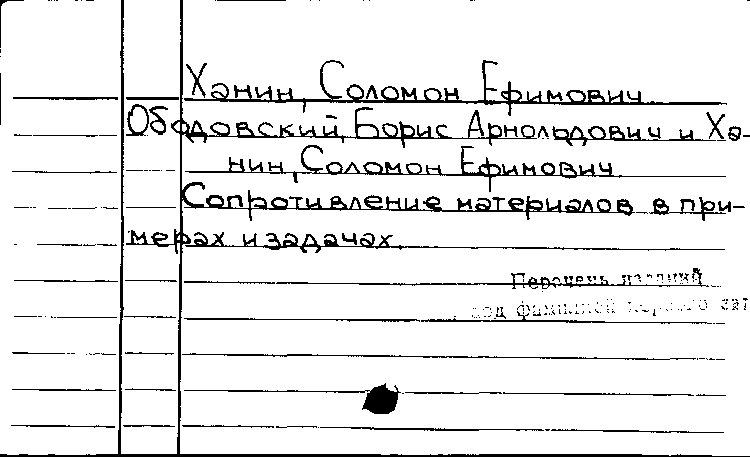 Ханин, Соломон Ефимович.
Ободовский, Борис Арнольдович и Ха-
нин, Соломон Ефимович.
Сопротивление материалов в при-
мерах и задачах.
Перечень изданий
под фамилией первого авт